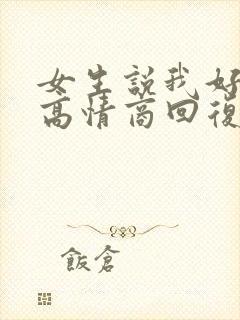 女生說我好
高情商回復
飯倉